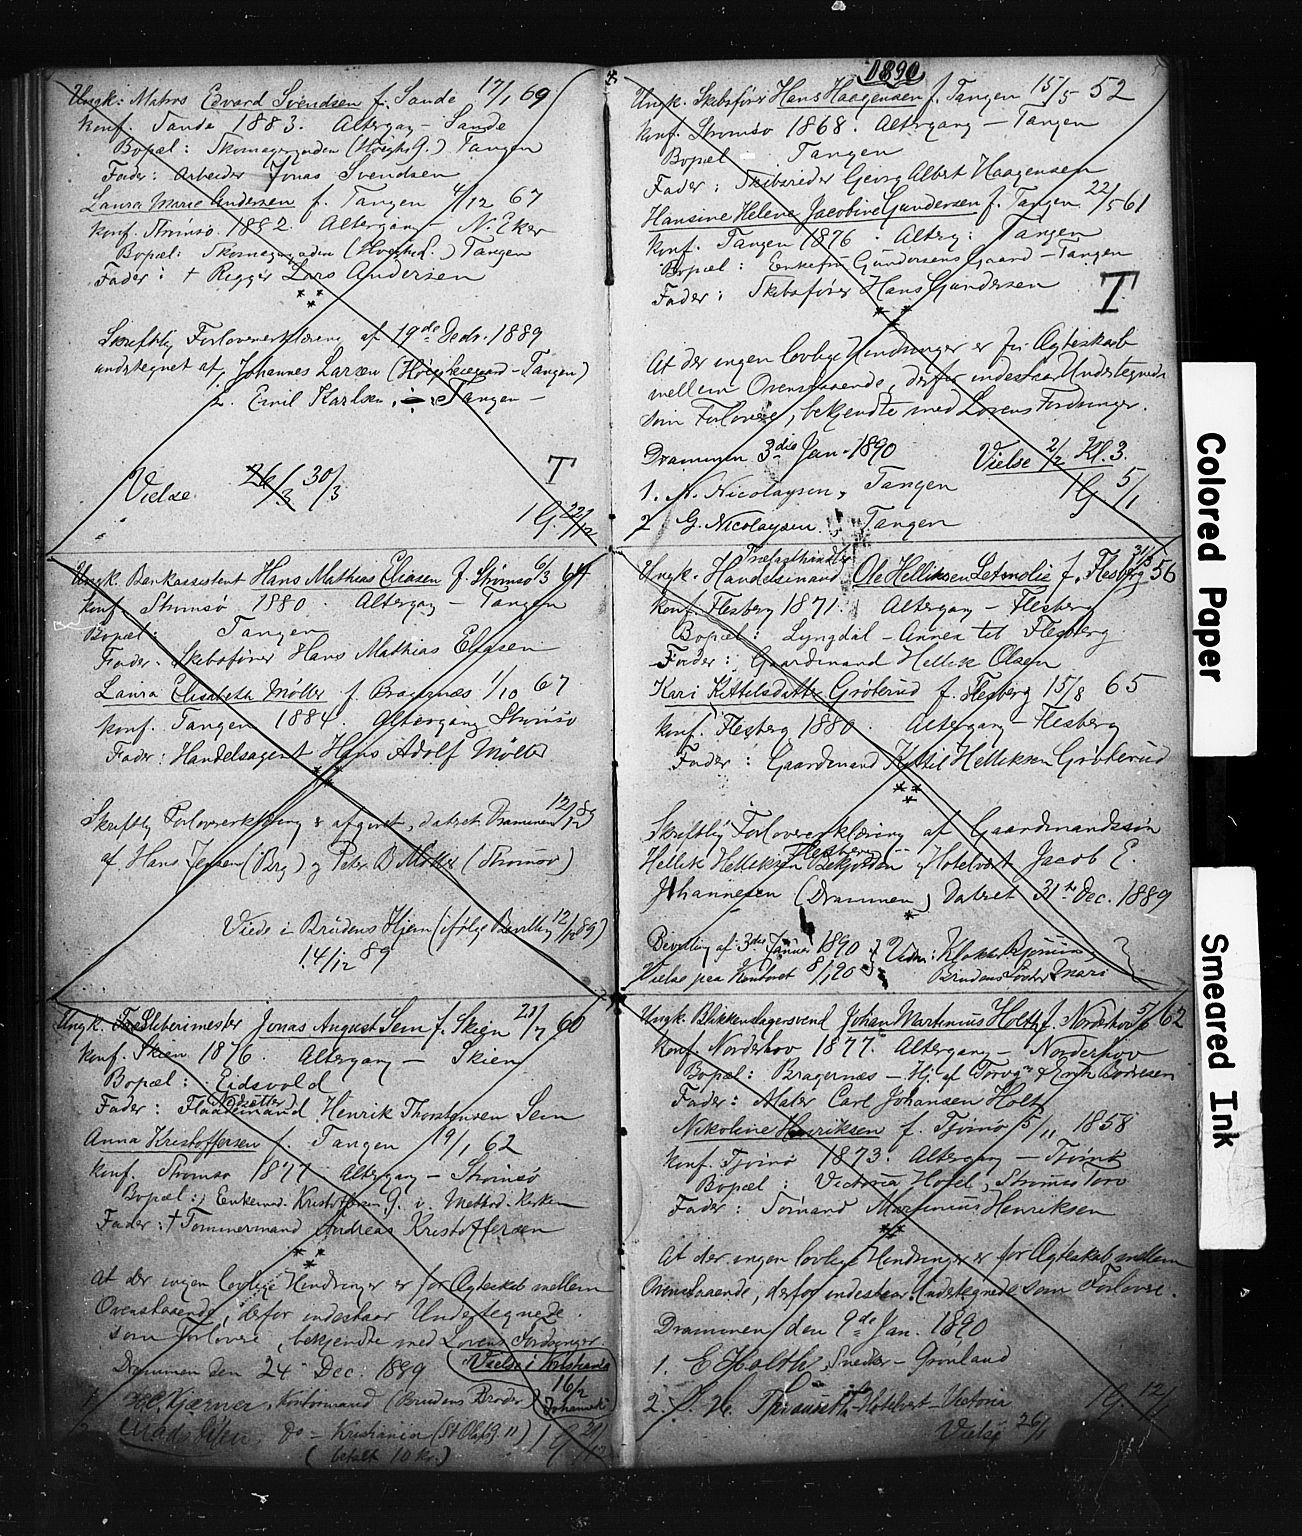 Ungk: Matros Edvard Svendsen f. Sande 17/1 69
Konf. Sande 1883. Altergang – Sande
Bopæl: Skomagergaden (Høeghs G.) Tangen
Fader: Arbeider Jonas Svendsen
Laura Marie Andersen f. Tangen 4/12 67
Konf. Strømsø 1882. Altergang – N. Eker
Bopæl: Skomagergaden Tangen
Fader: + Rigger Lars Andersen
Skriftlig Forlovererklæring af 19de Decbr. 1889
undertegnet af, Johannes Larsen (Høeghsgaard – Tangen)
2. Emil Karlsen, Tangen –
Vielse 26/3 30/3
T
1 G. 22/12
Ungk. Bankassistent Hans Mathias Eliasen f. Strømsø 6/3 64
Konf. Strømsø 1880. Altergang – Tangen
Bopæl: Tangen
Fader. Skibsfører Hans Mathias Eliasen
Laura Elisabeth Møller f. Bragernæs 1/10 67
Konf. Tangen 1884. Altergang Strømsø
Fader: Handelsagent Hans Adolf Møller
Skriftlig Forlovererklæring afgivet, dateret Drammen 12/12 89
af Hans Jensen (Brg) og Peter B Møller (Strømsø)
Viede i Brudens Hjem (ifølge Bevilling 12/12 89)
14/12 89
Ungk. Træsliberimester Jonas August Sem f. Skien 21/7 60
Konf. Skien 1876. Altergang – Skien
Bopæl: Eidsvold
Fader: Henrik Thorstensen Sem
Anna Kristoffersen f. Tangen 19/1 62
Konf. Strømsø 1877 Altergang – Strømsø
Bopæl: Enkemd. Kristoffersen G. v. Method. Kirken
Fader: + Tømmermand Andreas Kristoffersen
At der ingen lovlige Hindringer er for Ægteskab mellem
Ovenstaaende, derfor indestaar Undertegnede
som Forlovere, bekjendte med Lovens Fordringer
Drammen den 24 Dec. 1889
Vielse i Kristiania
16/2
Johannes K.
1. Kjærner, Kontormand (Brudens Broder)
2. do – Kristiania (St Olafs G. 11)
1 G 29/12
(betalt 10 kr.)
1890
Ungk. Skibsfører Hans Haagensen f. Tangen 15/5 52
Konf. Strømsø 1868. Altergang – Tangen
Bopæl Tangen
Fader: Skibsreder Georg Albert Haagensen
Hansine Helene Jacobine Gundersen f. Tangen 22/5 61
Konf. Tangen 1876. Alterg: Tangen
Bopæl: Enkefru Gundersens Gaard – Tangen
Fader: Skibsfører Hans Gundersen
T
At der ingen lovlige Hindringer er for Ægteskab
mellem Ovenstaaende, derfor indestaar Undertegnede
som Forlovere, bekjendte med Lovens Fordringer.
Drammen 3die Jan. 1890
Vielse 2/2 Kl. 3.
1. N. Nicolaysen, Tangen
1 G 5/1
2 G. Nicolaysen. Tangen
Trælasthandler
Ungk. Handelsmand Ole Helliksen Letmolie f. Flesberg 31/3 56
Konf. Flesberg 1871. Altergang – Flesberg
Bopæl: Lyngdal – Annex til Flesberg
Fader: Gaardmand Hellik Olsen
Kari Kittelsdatter Grøterud f. Flesberg 15/8 65
Konf. Flesberg 1880. Altergang – Flesberg
Fader: Gaardmand Kittil Helliksen Grøterud
Skriftlig Forlovererklæring af Gaardmandssøn
Hellik Helliksen (Flesberg) – og Hotelvært Jacob E.
Johannesen (Drammen) Dateret 31te Dec. 1889
Bevilling af 3die Januar 1890
Vielse paa Kontoret 8/1 90
Vidn: Klokker
Brudens Søster Mari
Ungk. Blikkenslagersvend Johan Martinius Holt f. Norderhov 5/6 62
Konf. Norderhov 1877. Altergang – Norderhov
Bopæl: Bragernæs – Hj. af Torvg. & Erik Børresen
Fader: Maler Carl Johansen Holt
Nikoline Henriksen f. Tjømø 5/11 1858
Konf. Tjømø 1873. Altergang – Tjømø
Bopæl: Victoria Hotel, Strømsø Torv
Fader: Sømand Martinius Henriksen
At der ingen lovlige Hindringer er for Ægteskab mellem
Ovenstaaende, derfor indestaar Undertegnede som Forlovere.
Drammen den 9de Jan. 1890
1. E Holth, Snedker – Grønland
2. Hotelvært – Victoria
1 G. 12/1
Vielse 26/1
Colored Paper
Smeared Ink